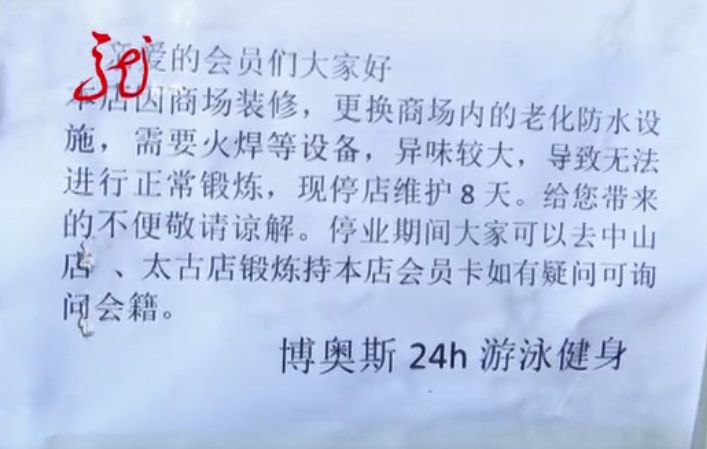 亲爱的会员们大家好
本店因商场装修，更换商场内的老化防水设
施，需要火焊等设备，异味较大，导致无法
进行正常锻炼，现停店维护 8 天。给您带来
的不便敬请谅解。停业期间大家可以去中山
店 、太古店锻炼持本店会员卡如有疑问可询
问会籍。
博奥斯 24h 游泳健身